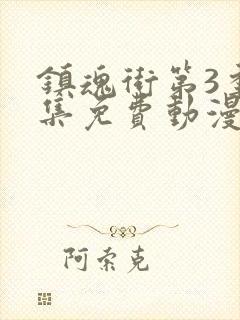 鎮魂街第3季
集免費動漫
阿索克